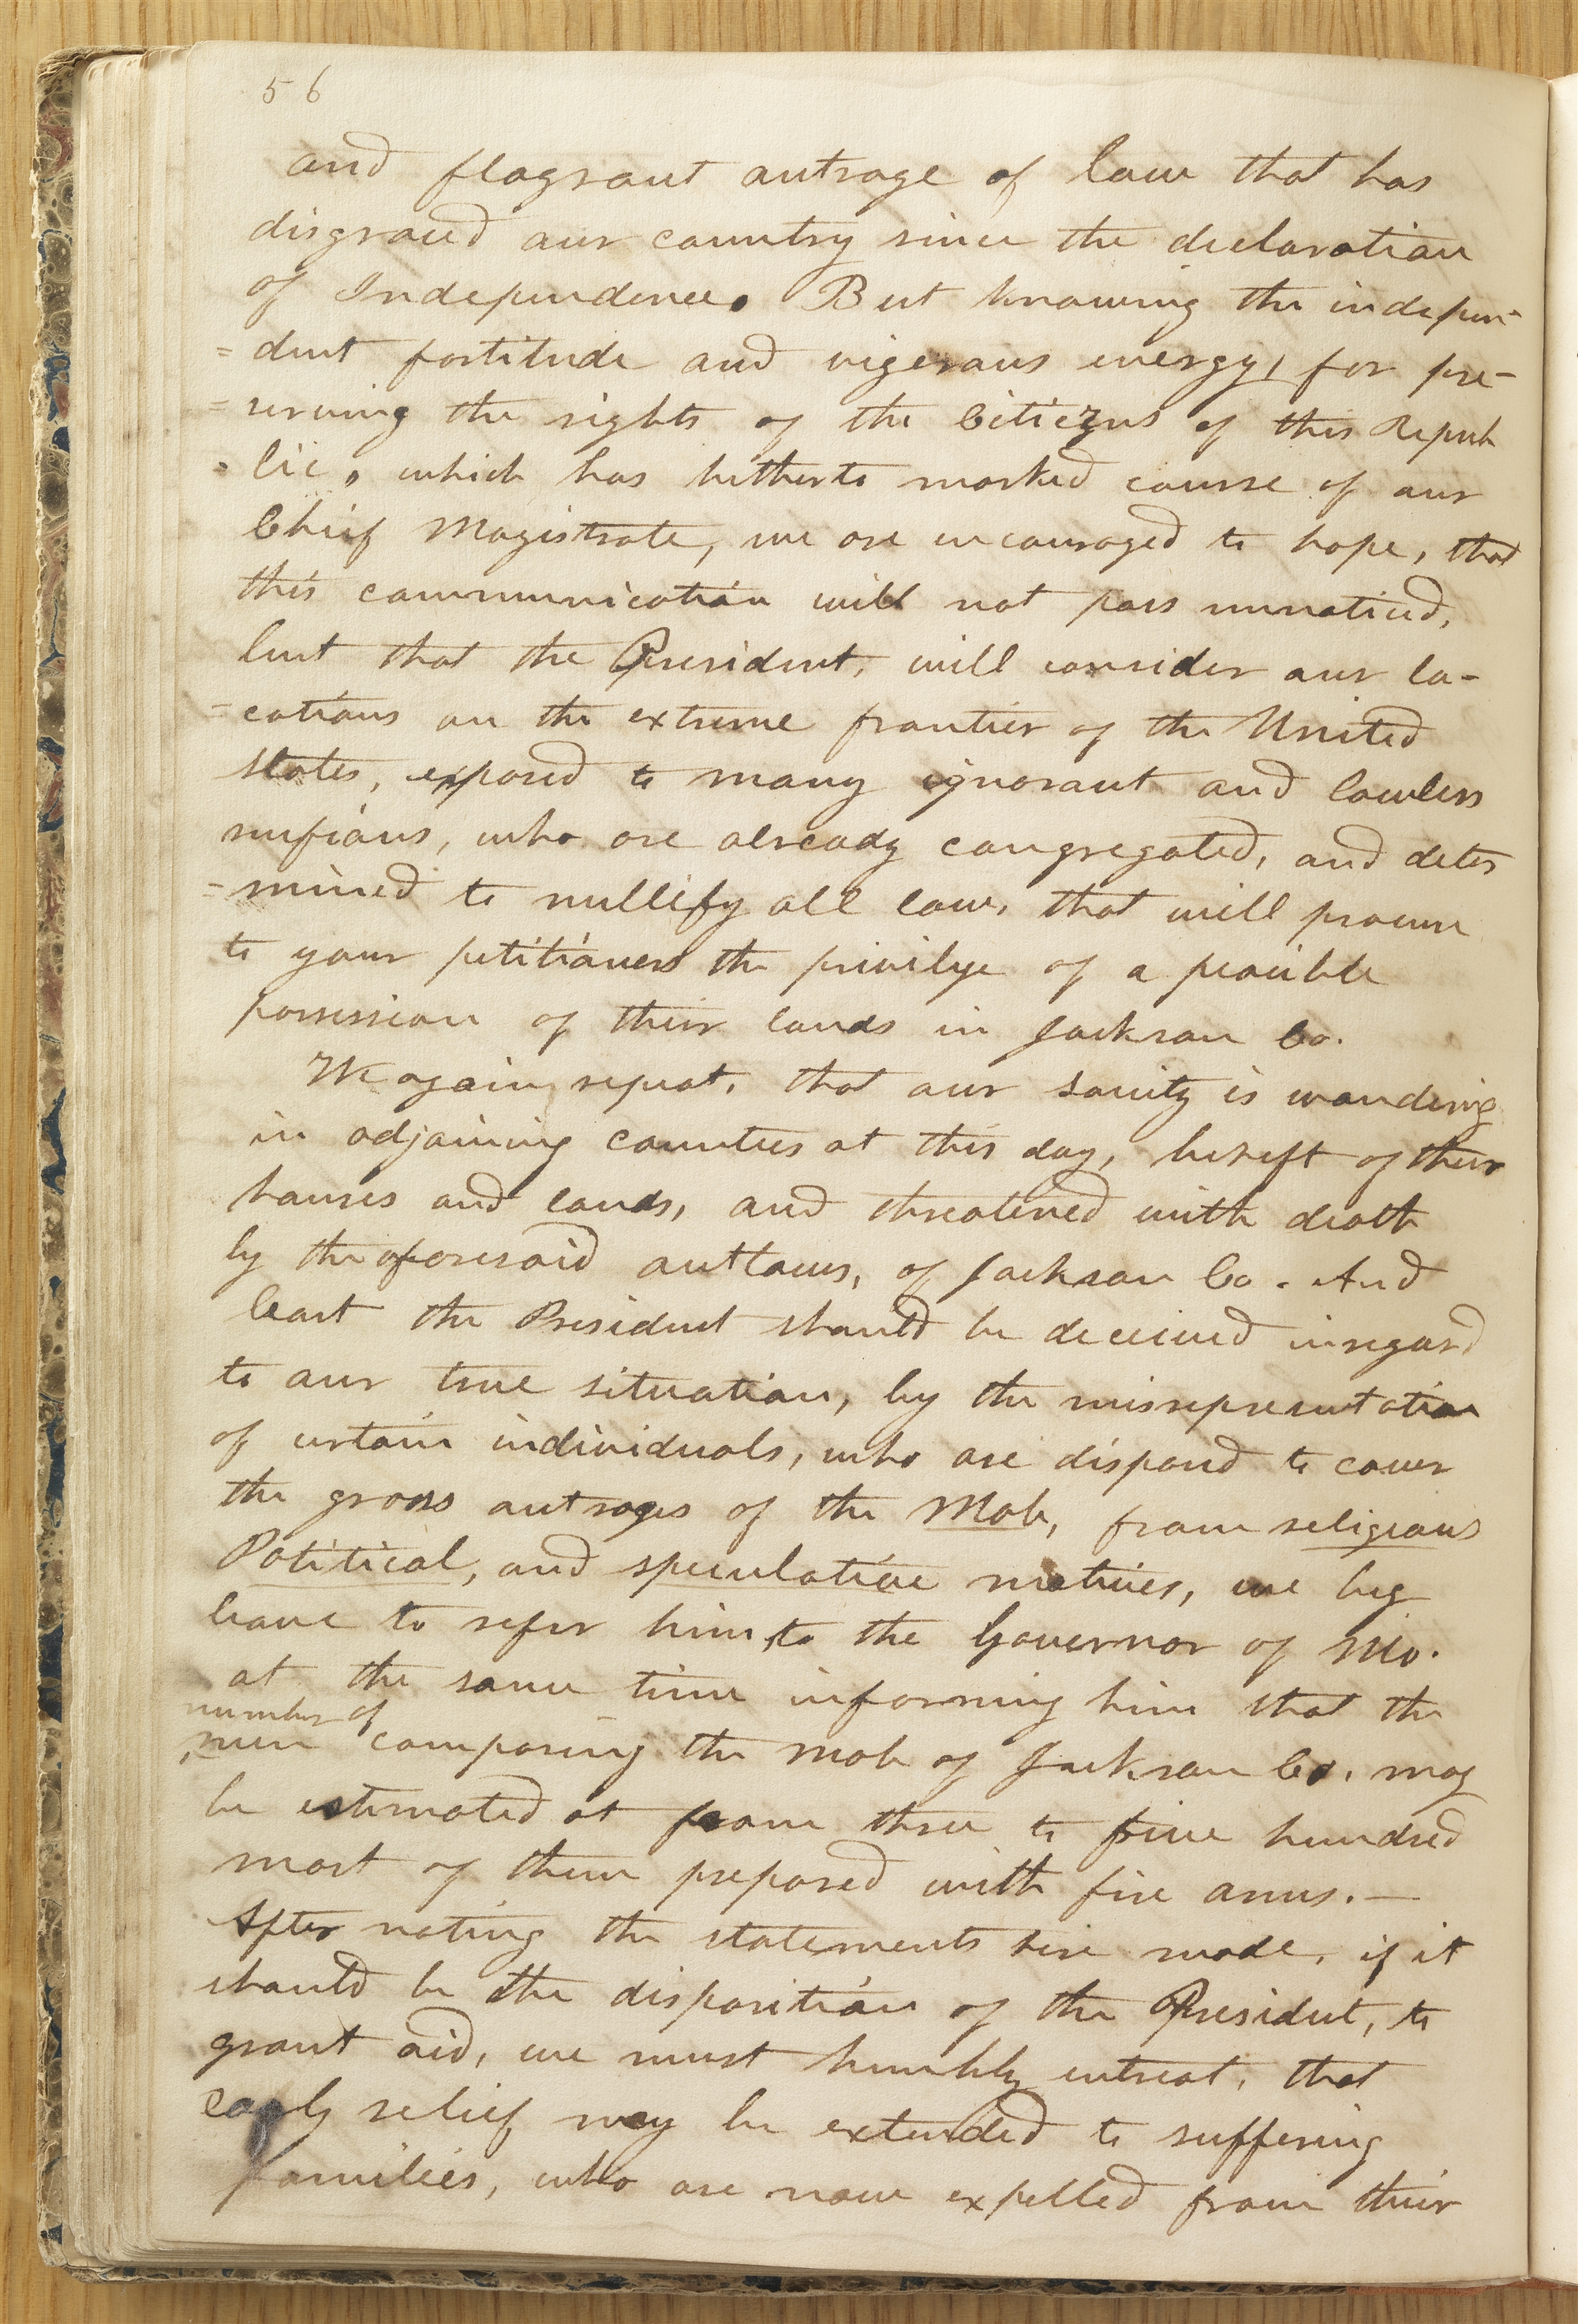 56
and flagrant outrage of law that has
disgraced our country since the declaration
of Independence. But knowing the indepen-
=dent fortitude and vigerous energy, for pre-
=serving the rights of the Citiezns of this Repub
=lic, which has hitherto marked course of our
Chief Magistrate, we are encouraged to hope, that
this communication will not pass unnoticed,
but that the President, will consider our lo-
=cations on the extreme frontier of the United
States, exposed to many ignorant and lawless
ruffians, who are already congregated, and deter
=mined to nullify all law, that will procure
to your petitioners the privilge of a peacible
possession of their lands in Jackson Co.
We again, repeat, that our society is wandering
in adjoining counties at this day, bereft of their
houses and lands, and threatened with death
by the aforesaid outlaws, of Jackson Co. And
least the President should be deceived in regard
to our true situation, by the misrepresentation
of certain individuals, who are disposed to cover
the gross outrages of the Mob, from religious
Political, and speculative motives, we beg
leave to refer him, to the Governor of Mo.
at the same time informing him that the
number of
men composing the mob of Jackson Co. may
be estimated at from three to five hundred
most of them prepared with fire arms.—
After noting the statements here made, if it
should be the disposition of the President, to
grant aid, we must humbly entreat, that
early relief may be extended to suffering
families, who are now expelled from their